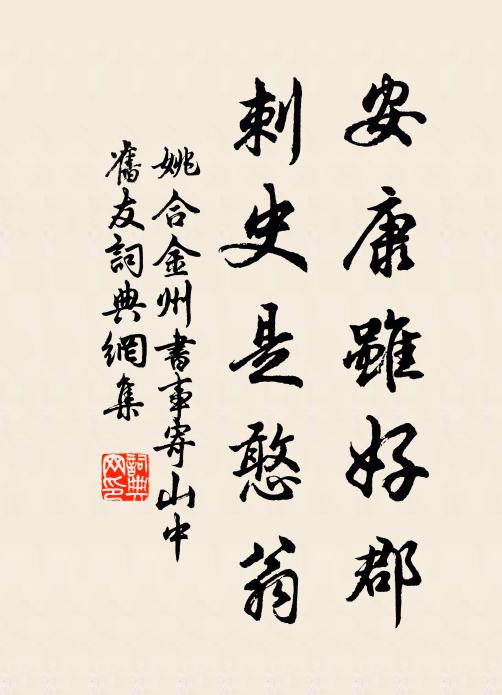 安康雖好郡
刺史是憨翁
姚合金州書事寄山中
舊友詞典網集
詞典網印